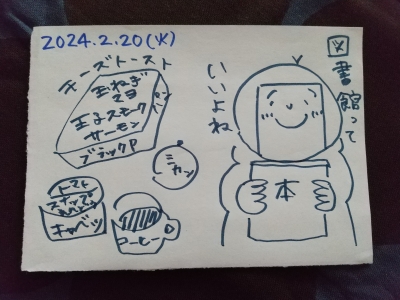 2024.2.20(火)
チーズトースト
玉ねぎ
マヨ
玉子スモーク
サーモン
ブラックP
パン
ミカン
トマト
スナップ
キャベツ
コーヒー
図書館って
いいよね
本